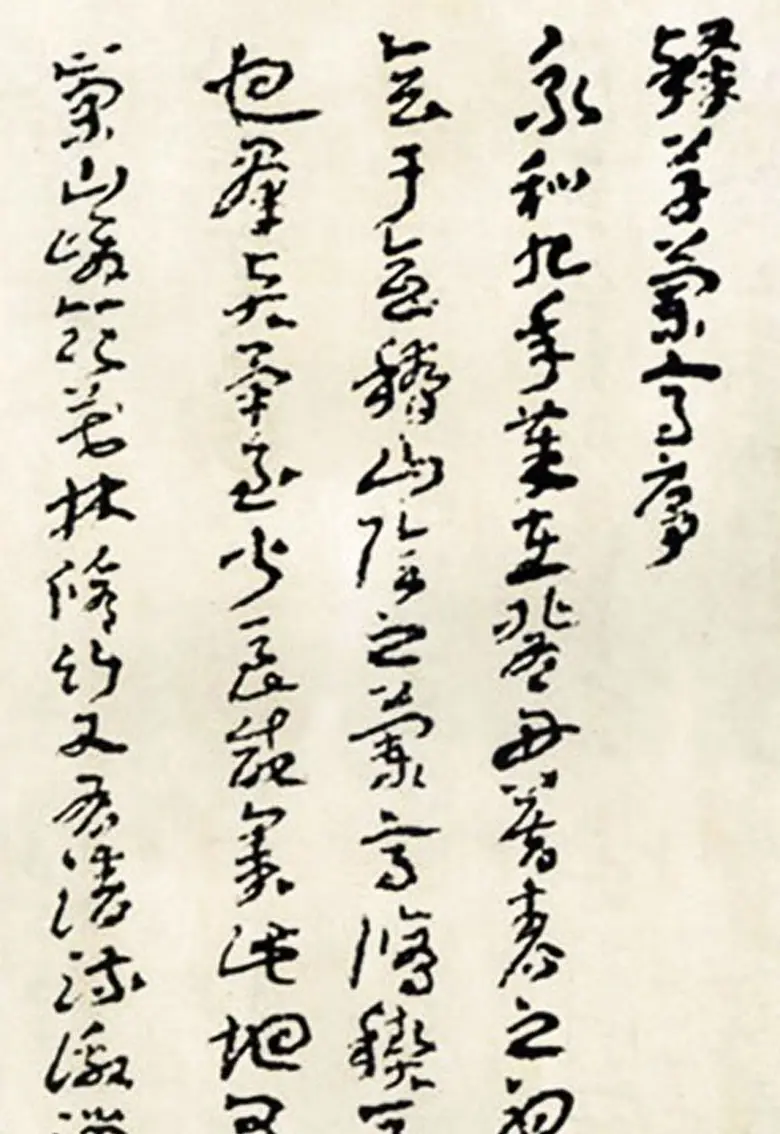 草蘭亭序
永和九年歲在癸丑暮春之初
會于會稽山陰之蘭亭脩禊
也羣賢畢至少長咸集此地
崇山峻領茂林脩竹又有清流激